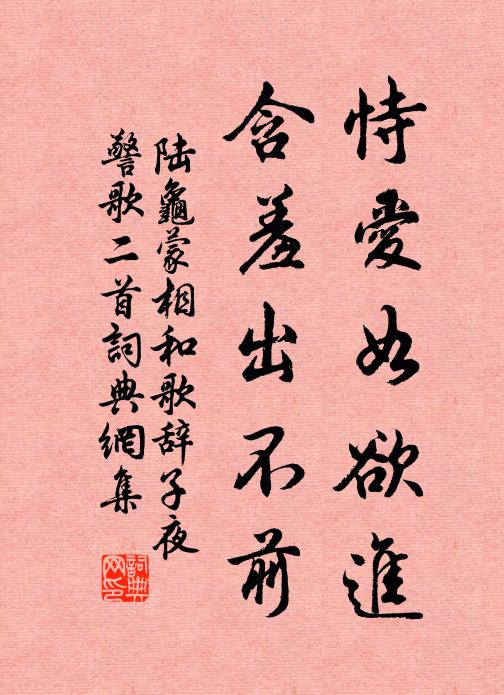 恃愛如欲進
含羞出不前
陆龜蒙相和歌辞子夜
警歌二首詞典網集
詞典网印